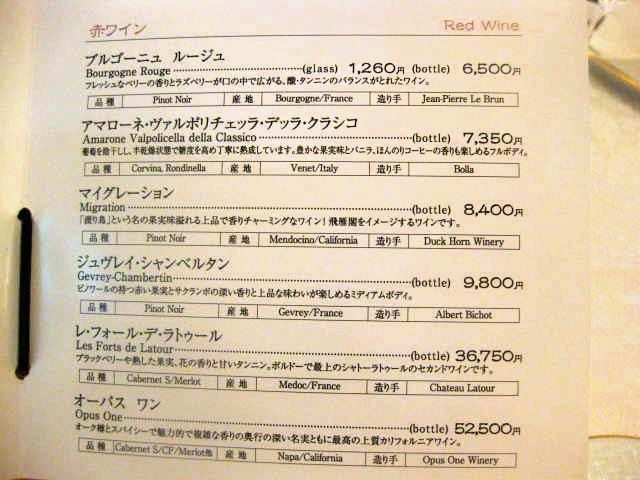 赤ワイン Red Wine
ブルゴーニュ ルージュ
Bourgogne Rouge (glass) 1,260円 (bottle) 6,500円
フレッシュなベリーの香りとラズベリーが口の中で広がる、酸・タンニンのバランスがとれたワイン。
品種 Pinot Noir 産地 Bourgogne/France 造り手 Jean-Pierre Le Brun
アマローネ・ヴァルポリチェッラ・デッラ・クラシコ
Amarone Valpolicella della Classico (bottle) 7,350円
葡萄を陰干しし、半乾燥状態で糖度を高め丁寧に熟成しています。豊かな果実味とバニラ、ほんのりコーヒーの香りも楽しめるフルボディ。
品種 Corvina, Rondinella 産地 Venet/Italy 造り手 Bolla
マイグレーション
Migration (bottle) 8,400円
「渡り鳥」という名の果実味溢れる上品で香りチャーミングなワイン!飛雁閣をイメージするワインです。
品種 Pinot Noir 産地 Mendocino/California 造り手 Duck Horn Winery
ジュヴレイ・シャンベルタン
Gevrey-Chambertin (bottle) 9,800円
ピノワールの持つ赤い果実とサクランボの深い香りと上品な味わいが楽しめるミディアムボディ。
品種 Pinot Noir 産地 Gevrey/France 造り手 Albert Bichot
レ・フォール・デ・ラトゥール
Les Forts de Latour (bottle) 36,750円
ブラックベリーや熟した果実、花の香りと甘いタンニン。ボルドーで最上のシャトーラトゥールのセカンドワインです。
品種 Cabernet S/Merlot 産地 Medoc/France 造り手 Chateau Latour
オーパス ワン
Opus One (bottle) 52,500円
オーク樽とスパイシーで魅力的で複雑な香りの奥行の深い名実ともに最高の上質カリフォルニアワイン。
品種 Cabernet S/CF/Merlot他 産地 Napa/California 造り手 Opus One Winery